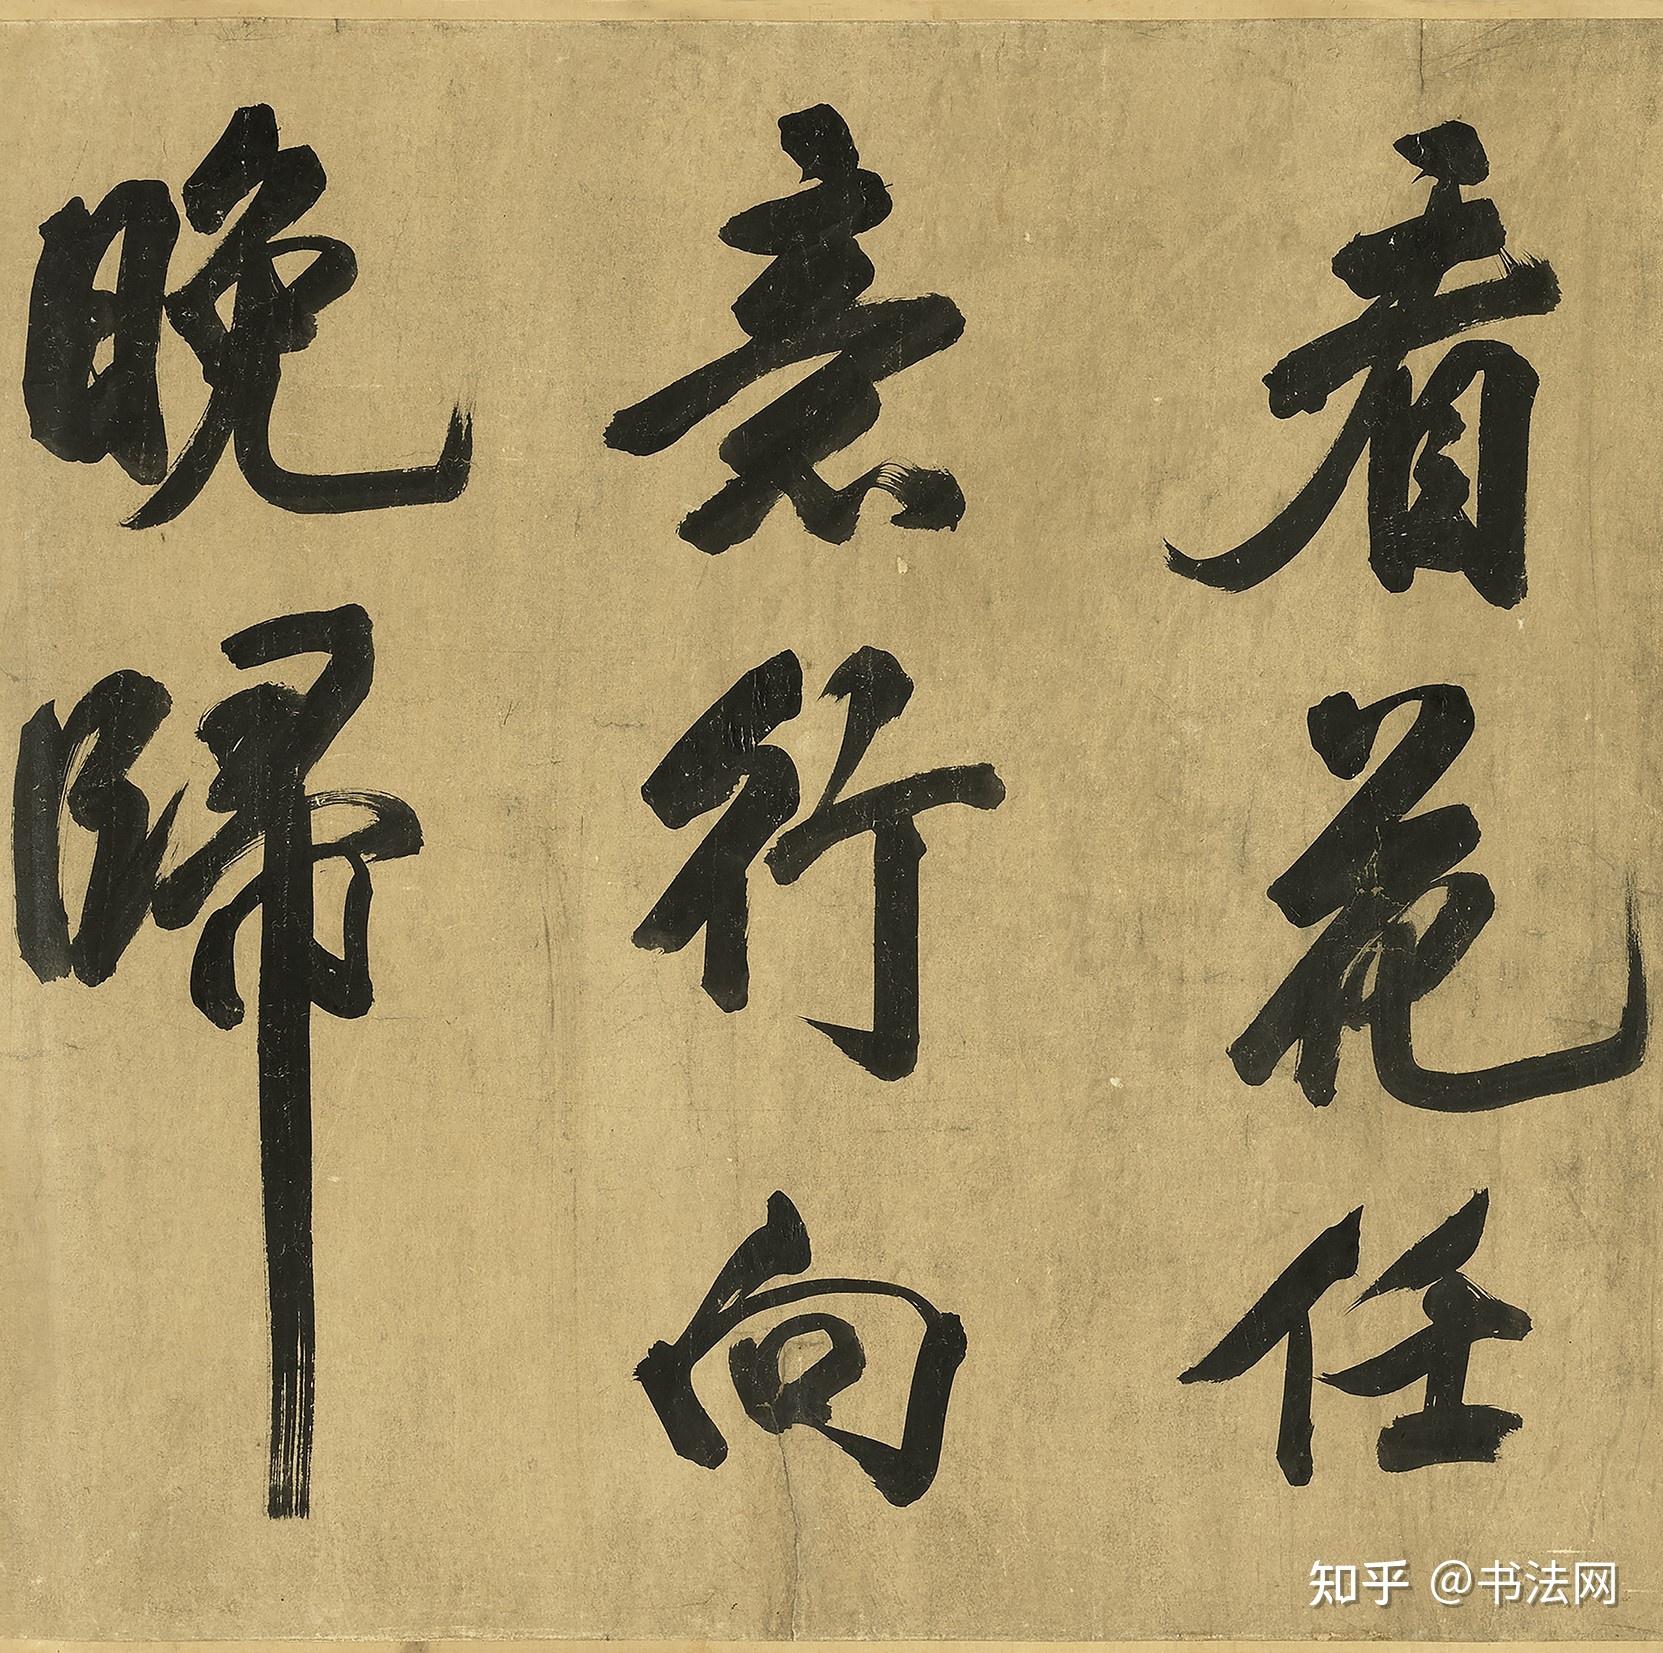 看花任
意行向
晚歸
知乎 @书法网